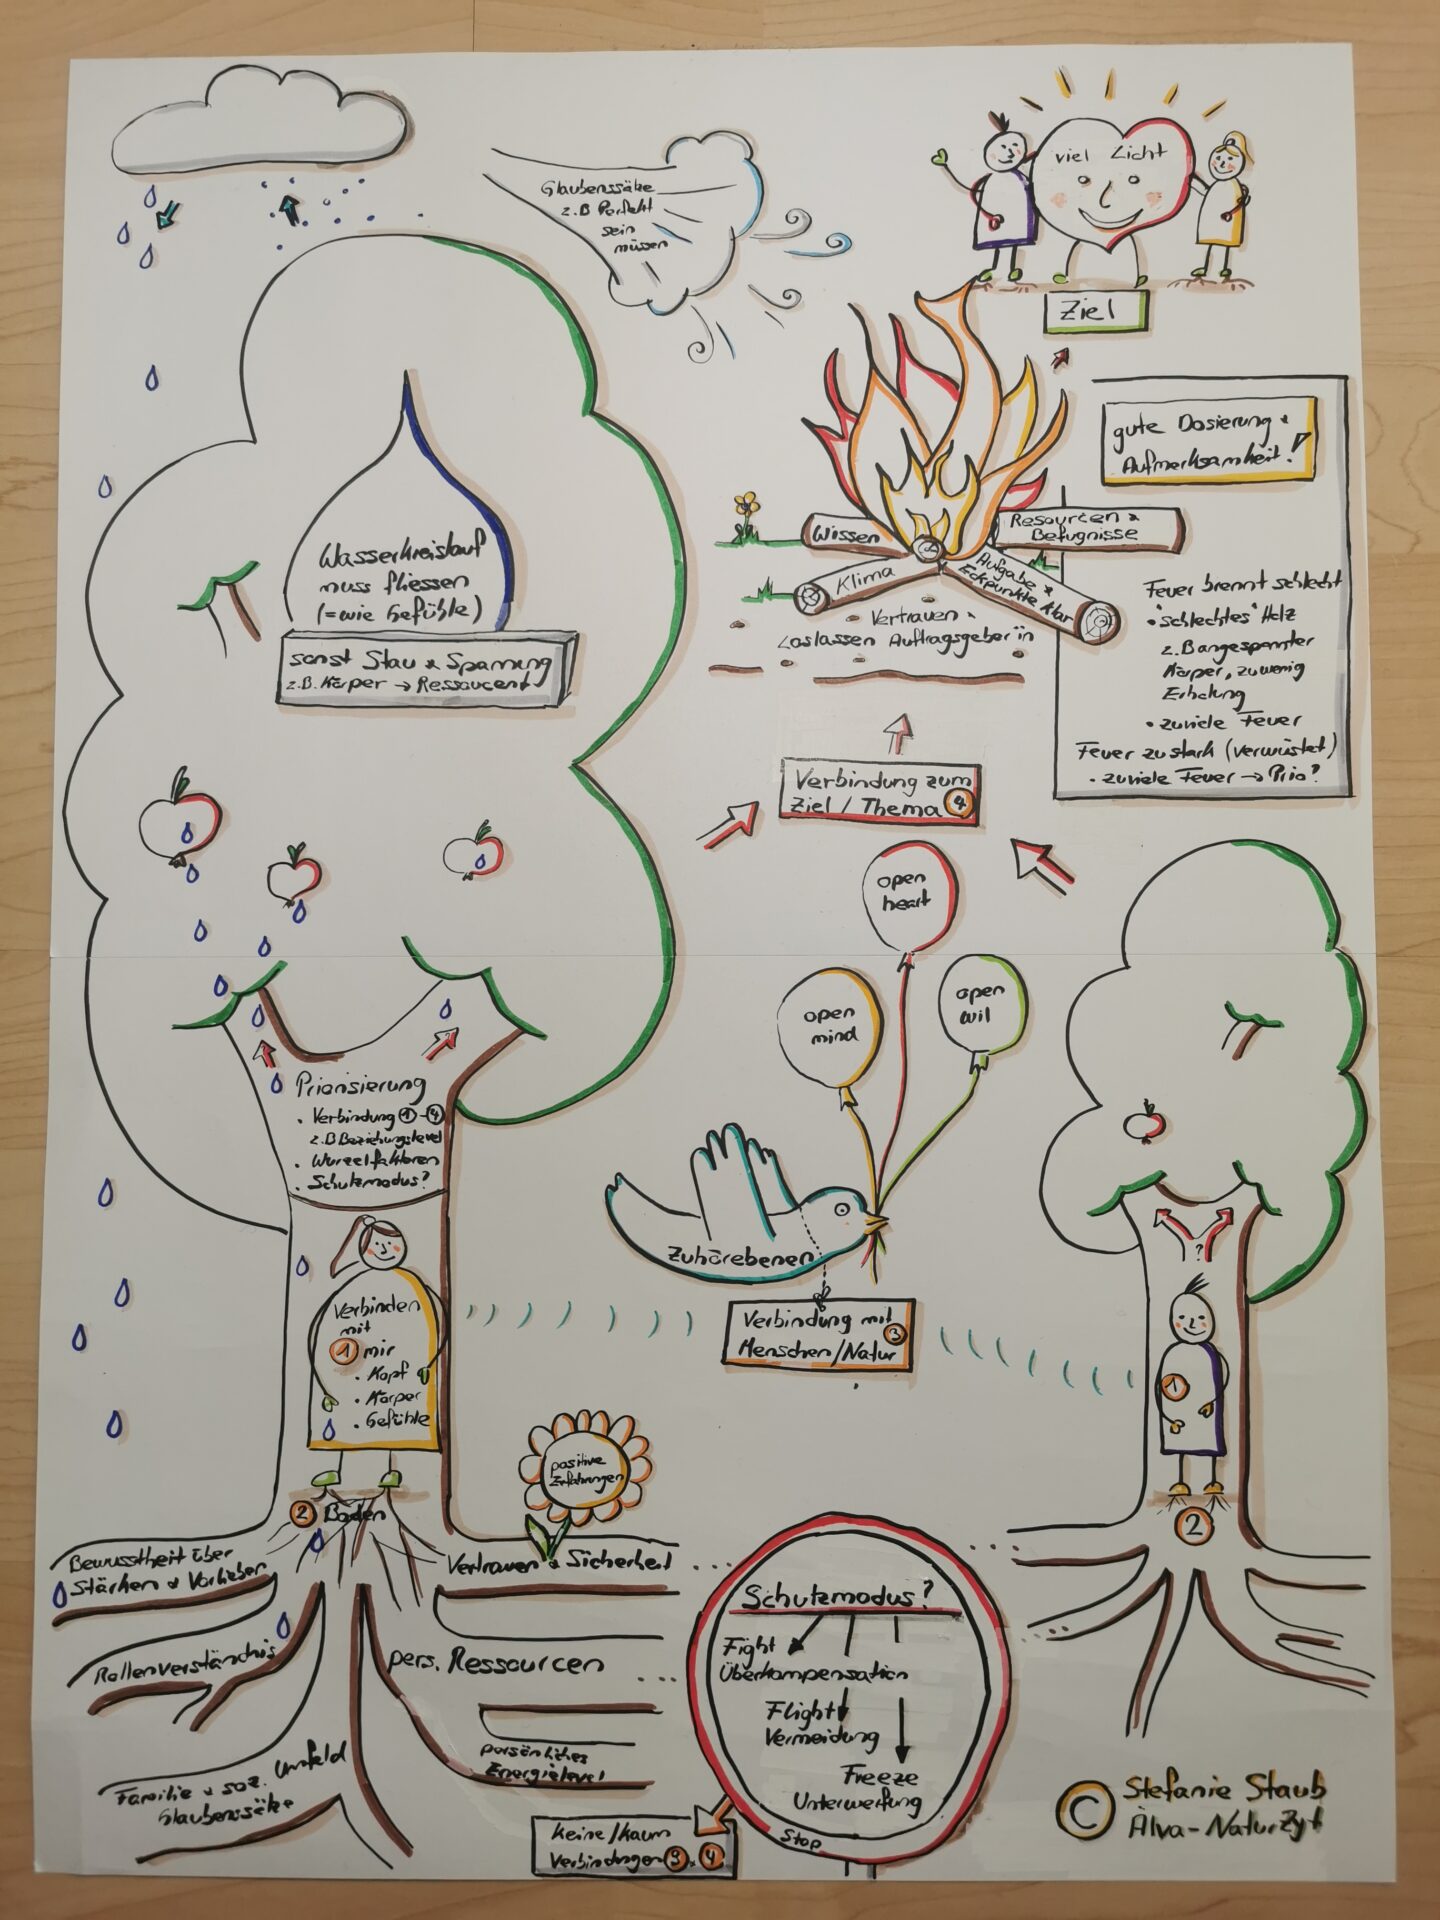 Glaubenssätze
z.B Perfekt
sein
müssen
viel Licht
Ziel
gute Dosierung &
Aufmerksamkeit!
Wissen
Resourcen &
Befugnisse
Klima
Aufgabe &
Eckpunkte klar
Vertrauen &
Loslassen Auftragsgeber in
Feuer brennt schlecht
• "schlechtes" Holz
z.B angespannter
Körper, zu wenig
Erholung
• zuviele Feuer
Feuer zu stark (verwüstet)
• zuviele Feuer → Prio?
Wasserkreislauf
muss fliessen
(= wie Gefühle)
sonst Stau & Spannung
z.B. Körper → Ressourcen↑
Verbindung zum
Ziel / Thema 4
open
heart
open
mind
open
wil
Priorisierung
• Verbindung 1-4
z.B Beziehungslevel
• Wurzelfaktoren
• Schutzmodus?
Zuhörebenen
Verbindung mit
Menschen/Natur 3
Verbinden
mit
1 mir
• Kopf
• Körper
• Gefühle
?
1
positive
Erfahrungen
2 Boden
2
Bewusstheit über
Stärken & Vorlieben
Vertrauen & Sicherheit
Rollenverständnis
pers. Ressourcen
persönliches
Energielevel
Familie & soz. Umfeld
Glaubenssätze
Schutzmodus?
Fight
Überkompensation
Flight
Vermeidung
Freeze
Unterwerfung
Stop
keine/kaum
Verbindungen 3 & 4
© Stefanie Staub
Alva-NaturZyt